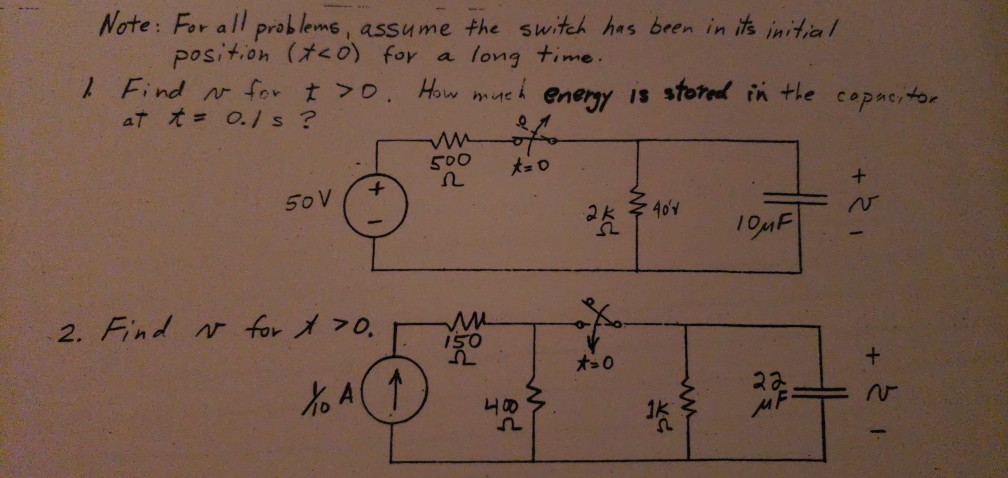 Note: For all problems, assume the switch has been in its initial
position (t<0) for a long time.
1. Find v for t >0. How much energy is stored in the capacitor
at t = 0.1 s ?
500
Ω
t=0
50V
+
-
2k
Ω
40v
10μF
+
v
-
2. Find v for t >0.
150
Ω
t=0
1/10 A
400
Ω
1k
Ω
22
μF
+
v
-